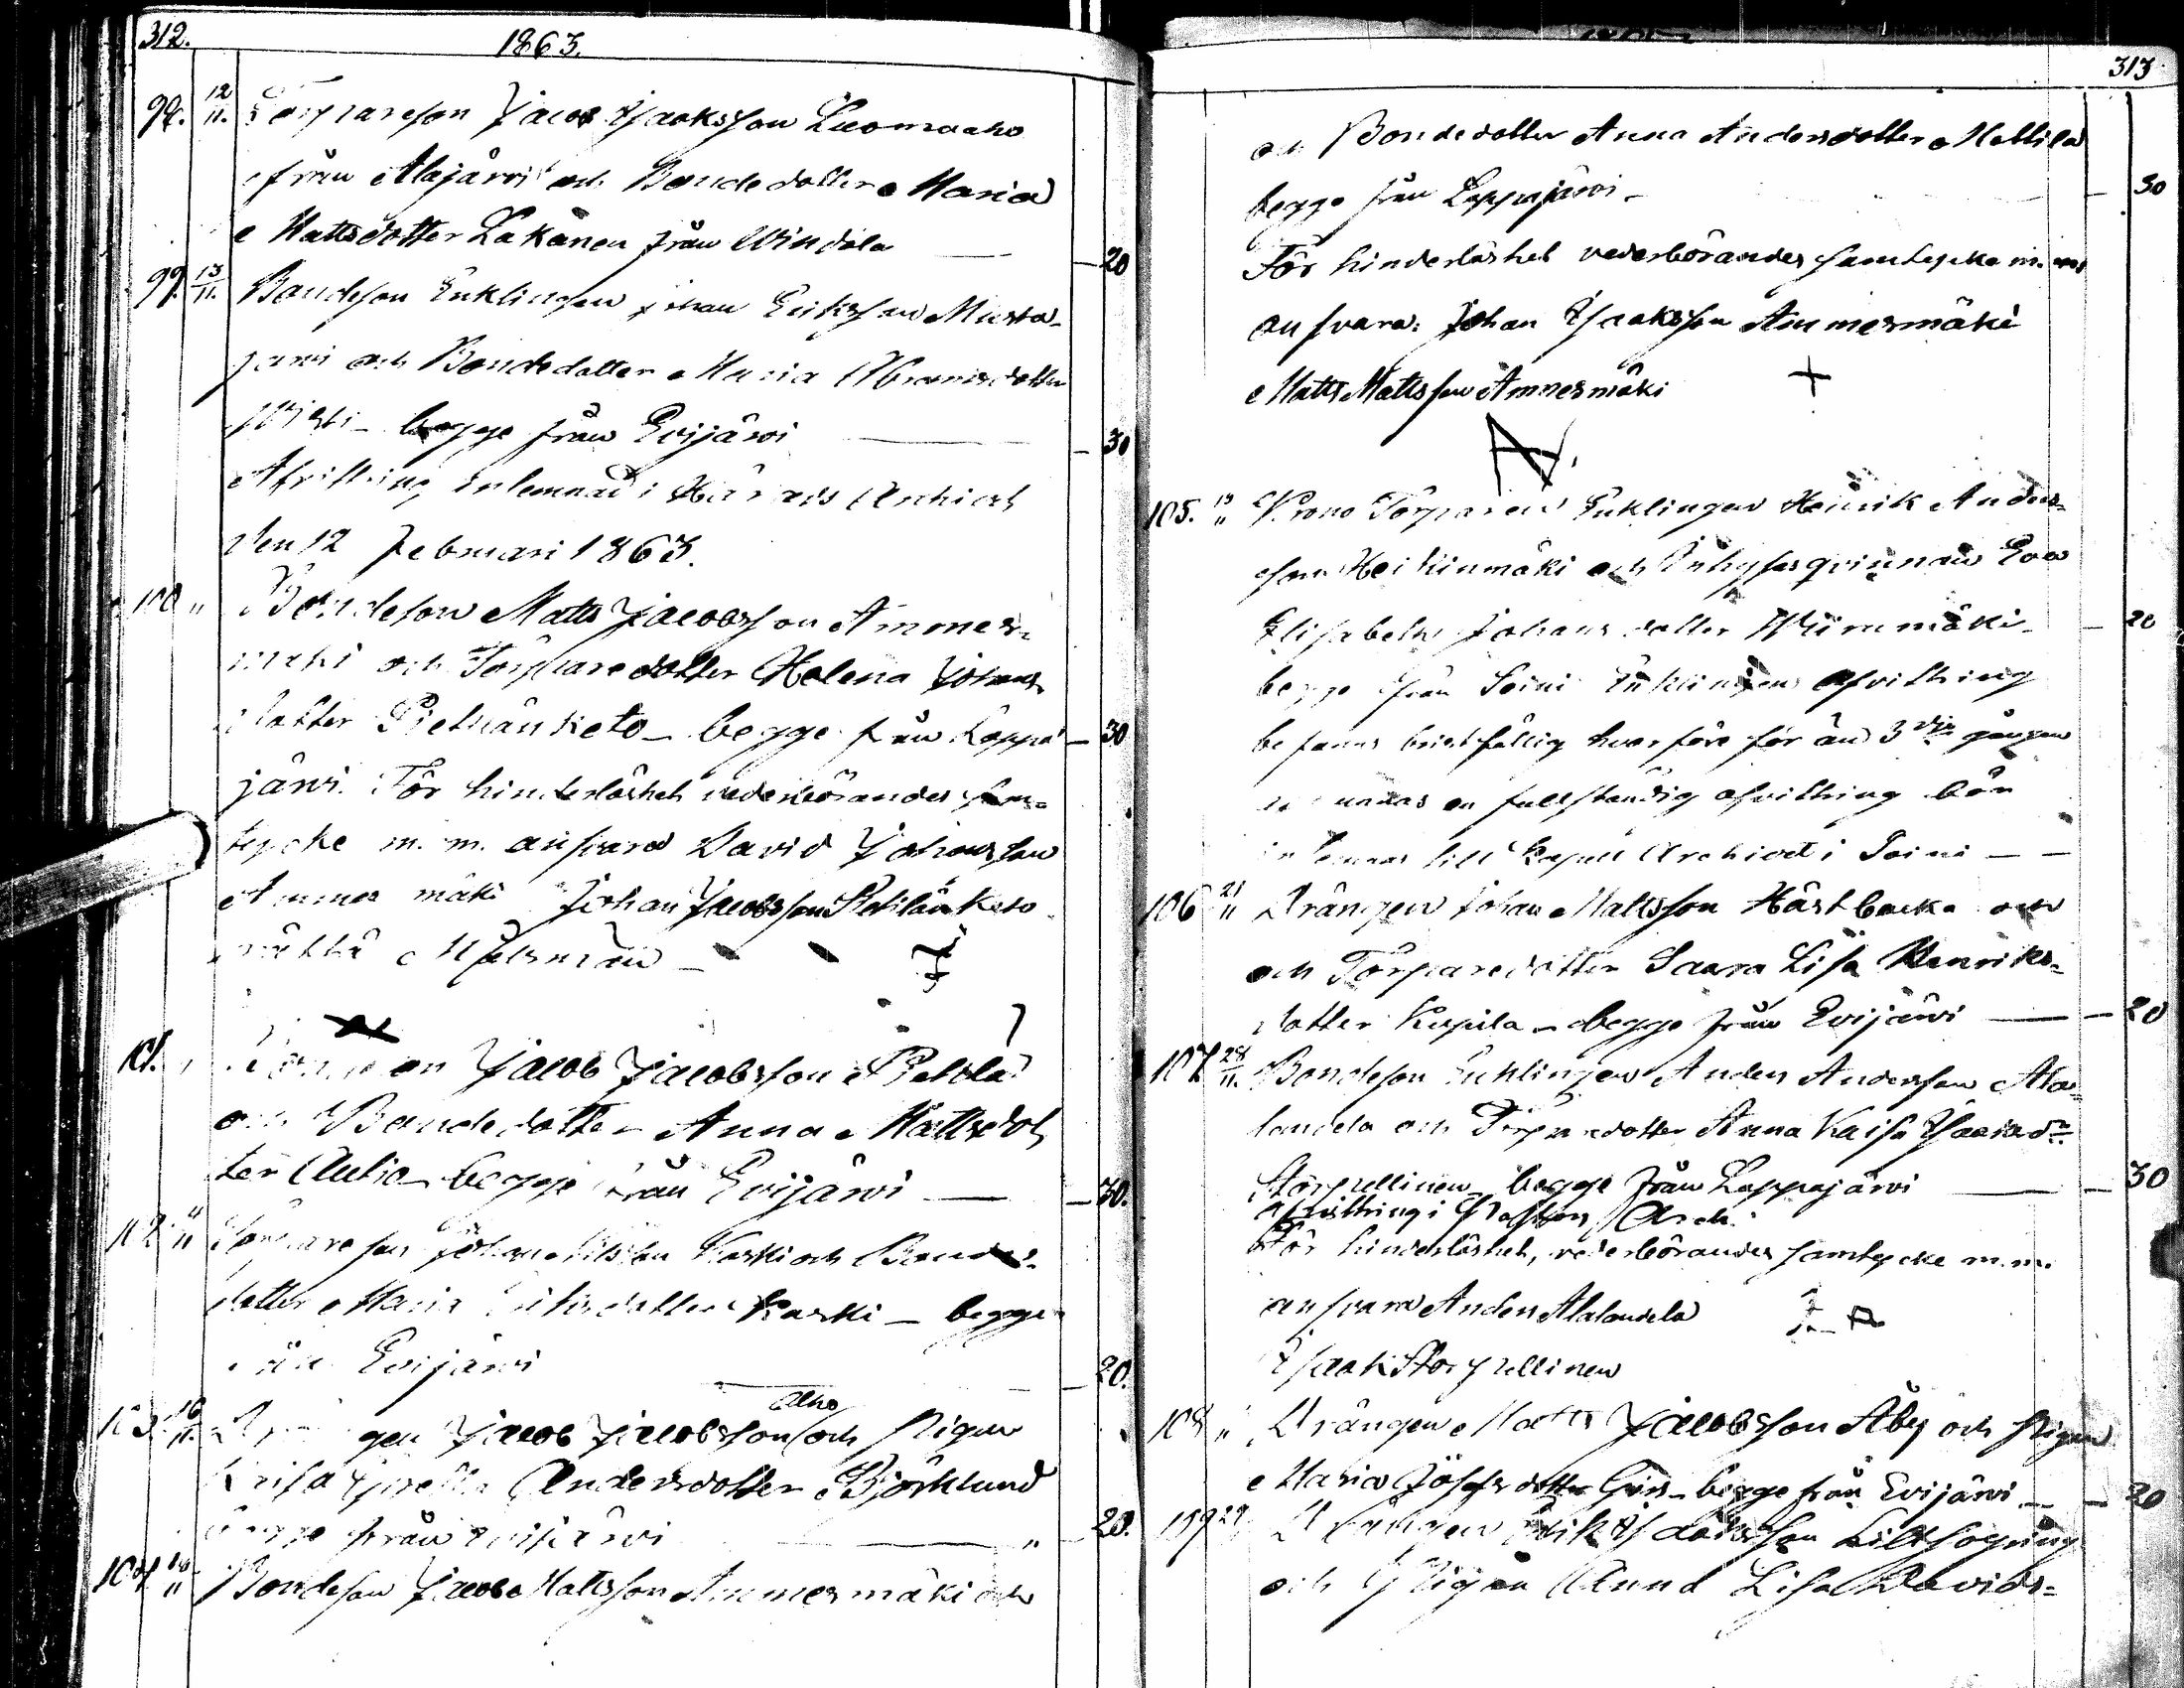 312.
1863.
98. 12/11. Torpareson Jacob Isaksson Luomaaho
från Alajärvi och Bondedotter Maria
Mattsdotter Lakanen från Windala — 20
99. 13/11. Bondeson Enklingen Johan Eriksson Musta-
järvi och Bondedotter Maria Abramsdotter
Wisti - begge från Evijärvi — 30
Afvittring inlemnad i Härads Archivet
den 12 Februari 1863.
100 " Bondeson Matts Jacobsson Ammes-
mäki och Torparedotter Helena Johans
dotter Pietiänketo - begge från Lappa — 30
järvi. För hinderlöshet vederbörandes sam-
tycke m. m. ansvara David Johansson
Ammesmäki Johan Jacobsson
Målsmän -
101. " Jacob Jacobsson Peltola
och Bondedotter Anna Mattsdot
ter Autio - begge från Evijärvi — 30.
102 " Torpareson Johan Kaski och Bonde-
dotter Maria Eriksdotter Kaski - begge
från Evijärvi — 20.
103. 16/11. Drängen Jacob Jacobsson Alho och Pigan
Andersdotter Björklund
begge från Evijärvi — " 20.
104 18/" Bondeson Jacob Mattsson Ammesmäki och
313
och Bondedotter Anna Andersdotter Mattila
begge från Lappajärvi - — 30
För hinderlöshet vederbörandes samtycke m. m.
ansvara: Johan Isaksson Ammesmäki
Matts Mattsson Ammesmäki +
105. 19/" Krono Torparen Enklingen Henrik Anders-
son Heikinmäki och Inhyses qvinnan Eva
Elisabeth Johansdotter Wiinamäki - — 20
begge från Soini Enklingens afvittring
befanns bristfällig hvarföre för än 3dje gången
en fullständig afvittring bör
inlemnas till Kapell Archivet i Soini — —
106 21/" Drängen Johan Mattsson Hästbacka och
och Torparedotter Saara Lisa Henriks-
dotter Kupila - begge från Evijärvi — 20
107 28/11. Bondeson Enklingen Anders Andersson Ala-
landela och Torparedotter Anna Kaisa Isaksdr
Storpellinen begge från Lappajärvi — 30
Afvittring i Pastors Arch.
För hinderlöshet, vederbörandes samtycke m.m.
ansvara Anders Alalandela
Isaak Storpellinen
108 " Drängen Matts Jacobsson Åby och Pigan
Maria Josefsdotter Gers - begge från Evijärvi — 20
109 29/ Drängen Erik Isaksson Lillsopning
och Pigan Anna Lisa Davids-